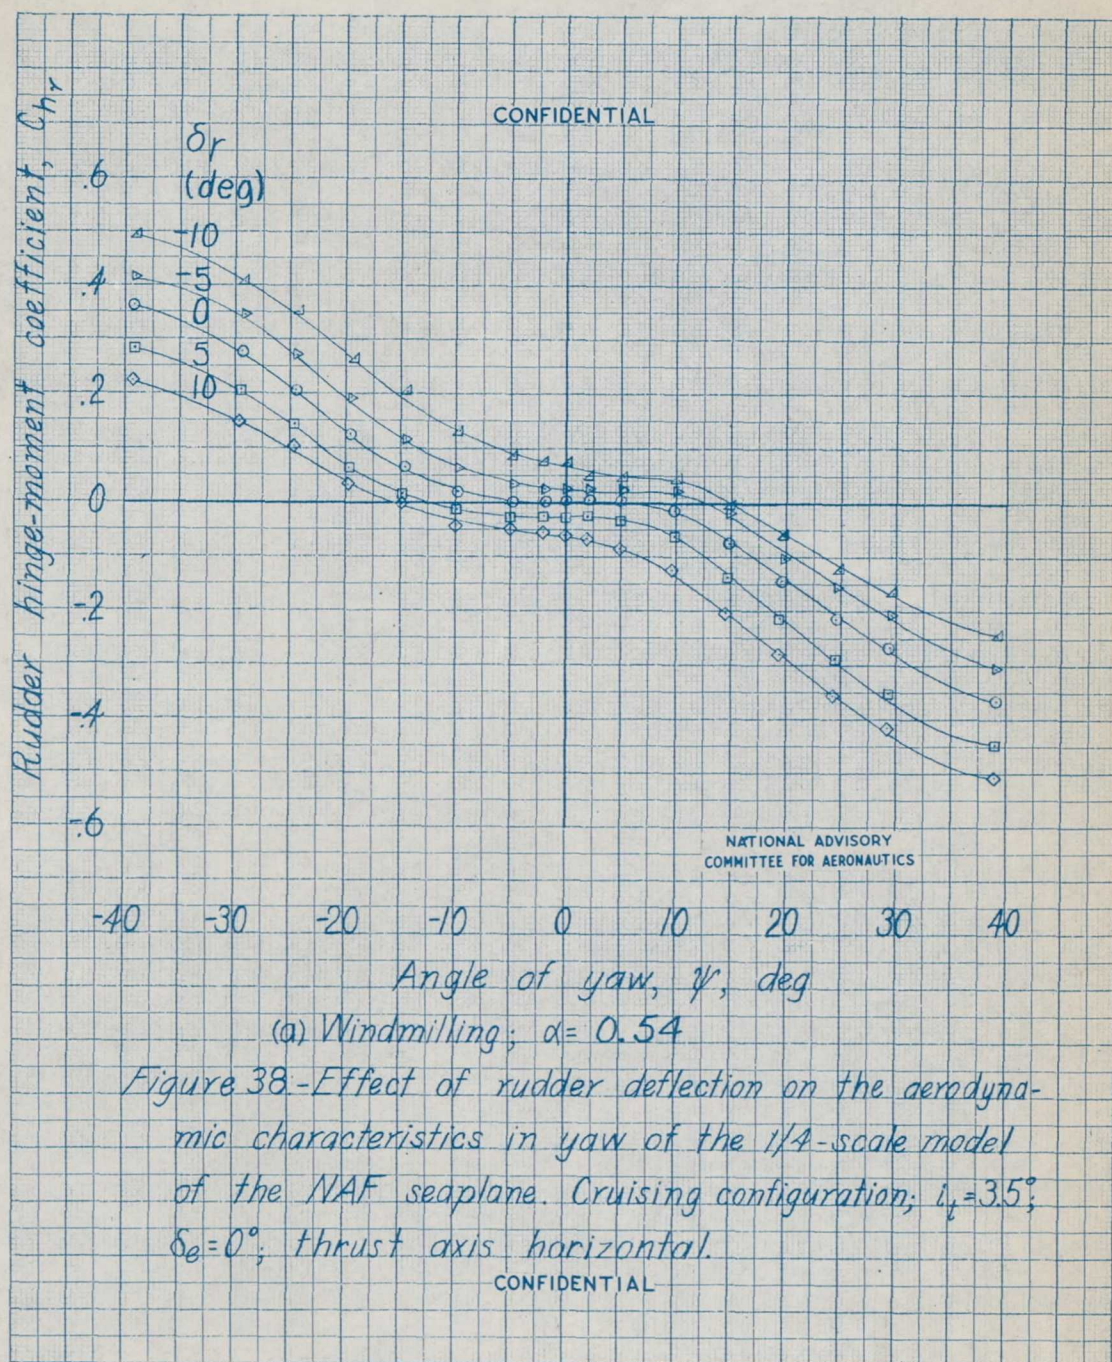 CONFIDENTIAL
Rudder hinge-moment coefficient, Chr
δr
(deg)
-10
-5
0
5
10
.6
.4
.2
0
-.2
-.4
-.6
NATIONAL ADVISORY
COMMITTEE FOR AERONAUTICS
-40 -30 -20 -10 0 10 20 30 40
Angle of yaw, ψ, deg
(a) Windmilling; α= 0.54
Figure 38.-Effect of rudder deflection on the aerodyna-
mic characteristics in yaw of the 1/4-scale model
of the NAF seaplane. Cruising configuration; it=3.5°;
δe=0°; thrust axis horizontal.
CONFIDENTIAL